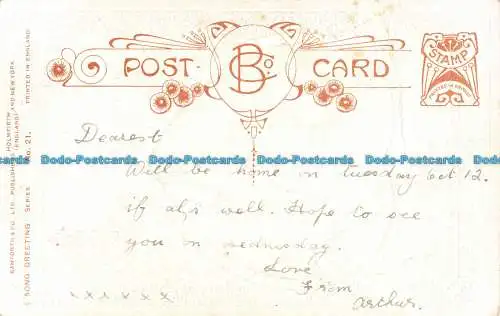 POST CARD
B Co.
STAMP
PRINTED IN ENGLAND
BAMFORTH & CO., LTD., PUBLISHERS, HOLMFIRTH (ENGLAND) AND NEW YORK.
SONG GREETING SERIES NO. 21. PRINTED IN ENGLAND
Dearest
Dodo-Postcards Dodo-Postcards Dodo-Postcards Dodo-Postcards
Will be home on tuesday Oct 12.
if al,s well. Hope to see
you on wednesday.
Love
From
arthur.
x x x x x x